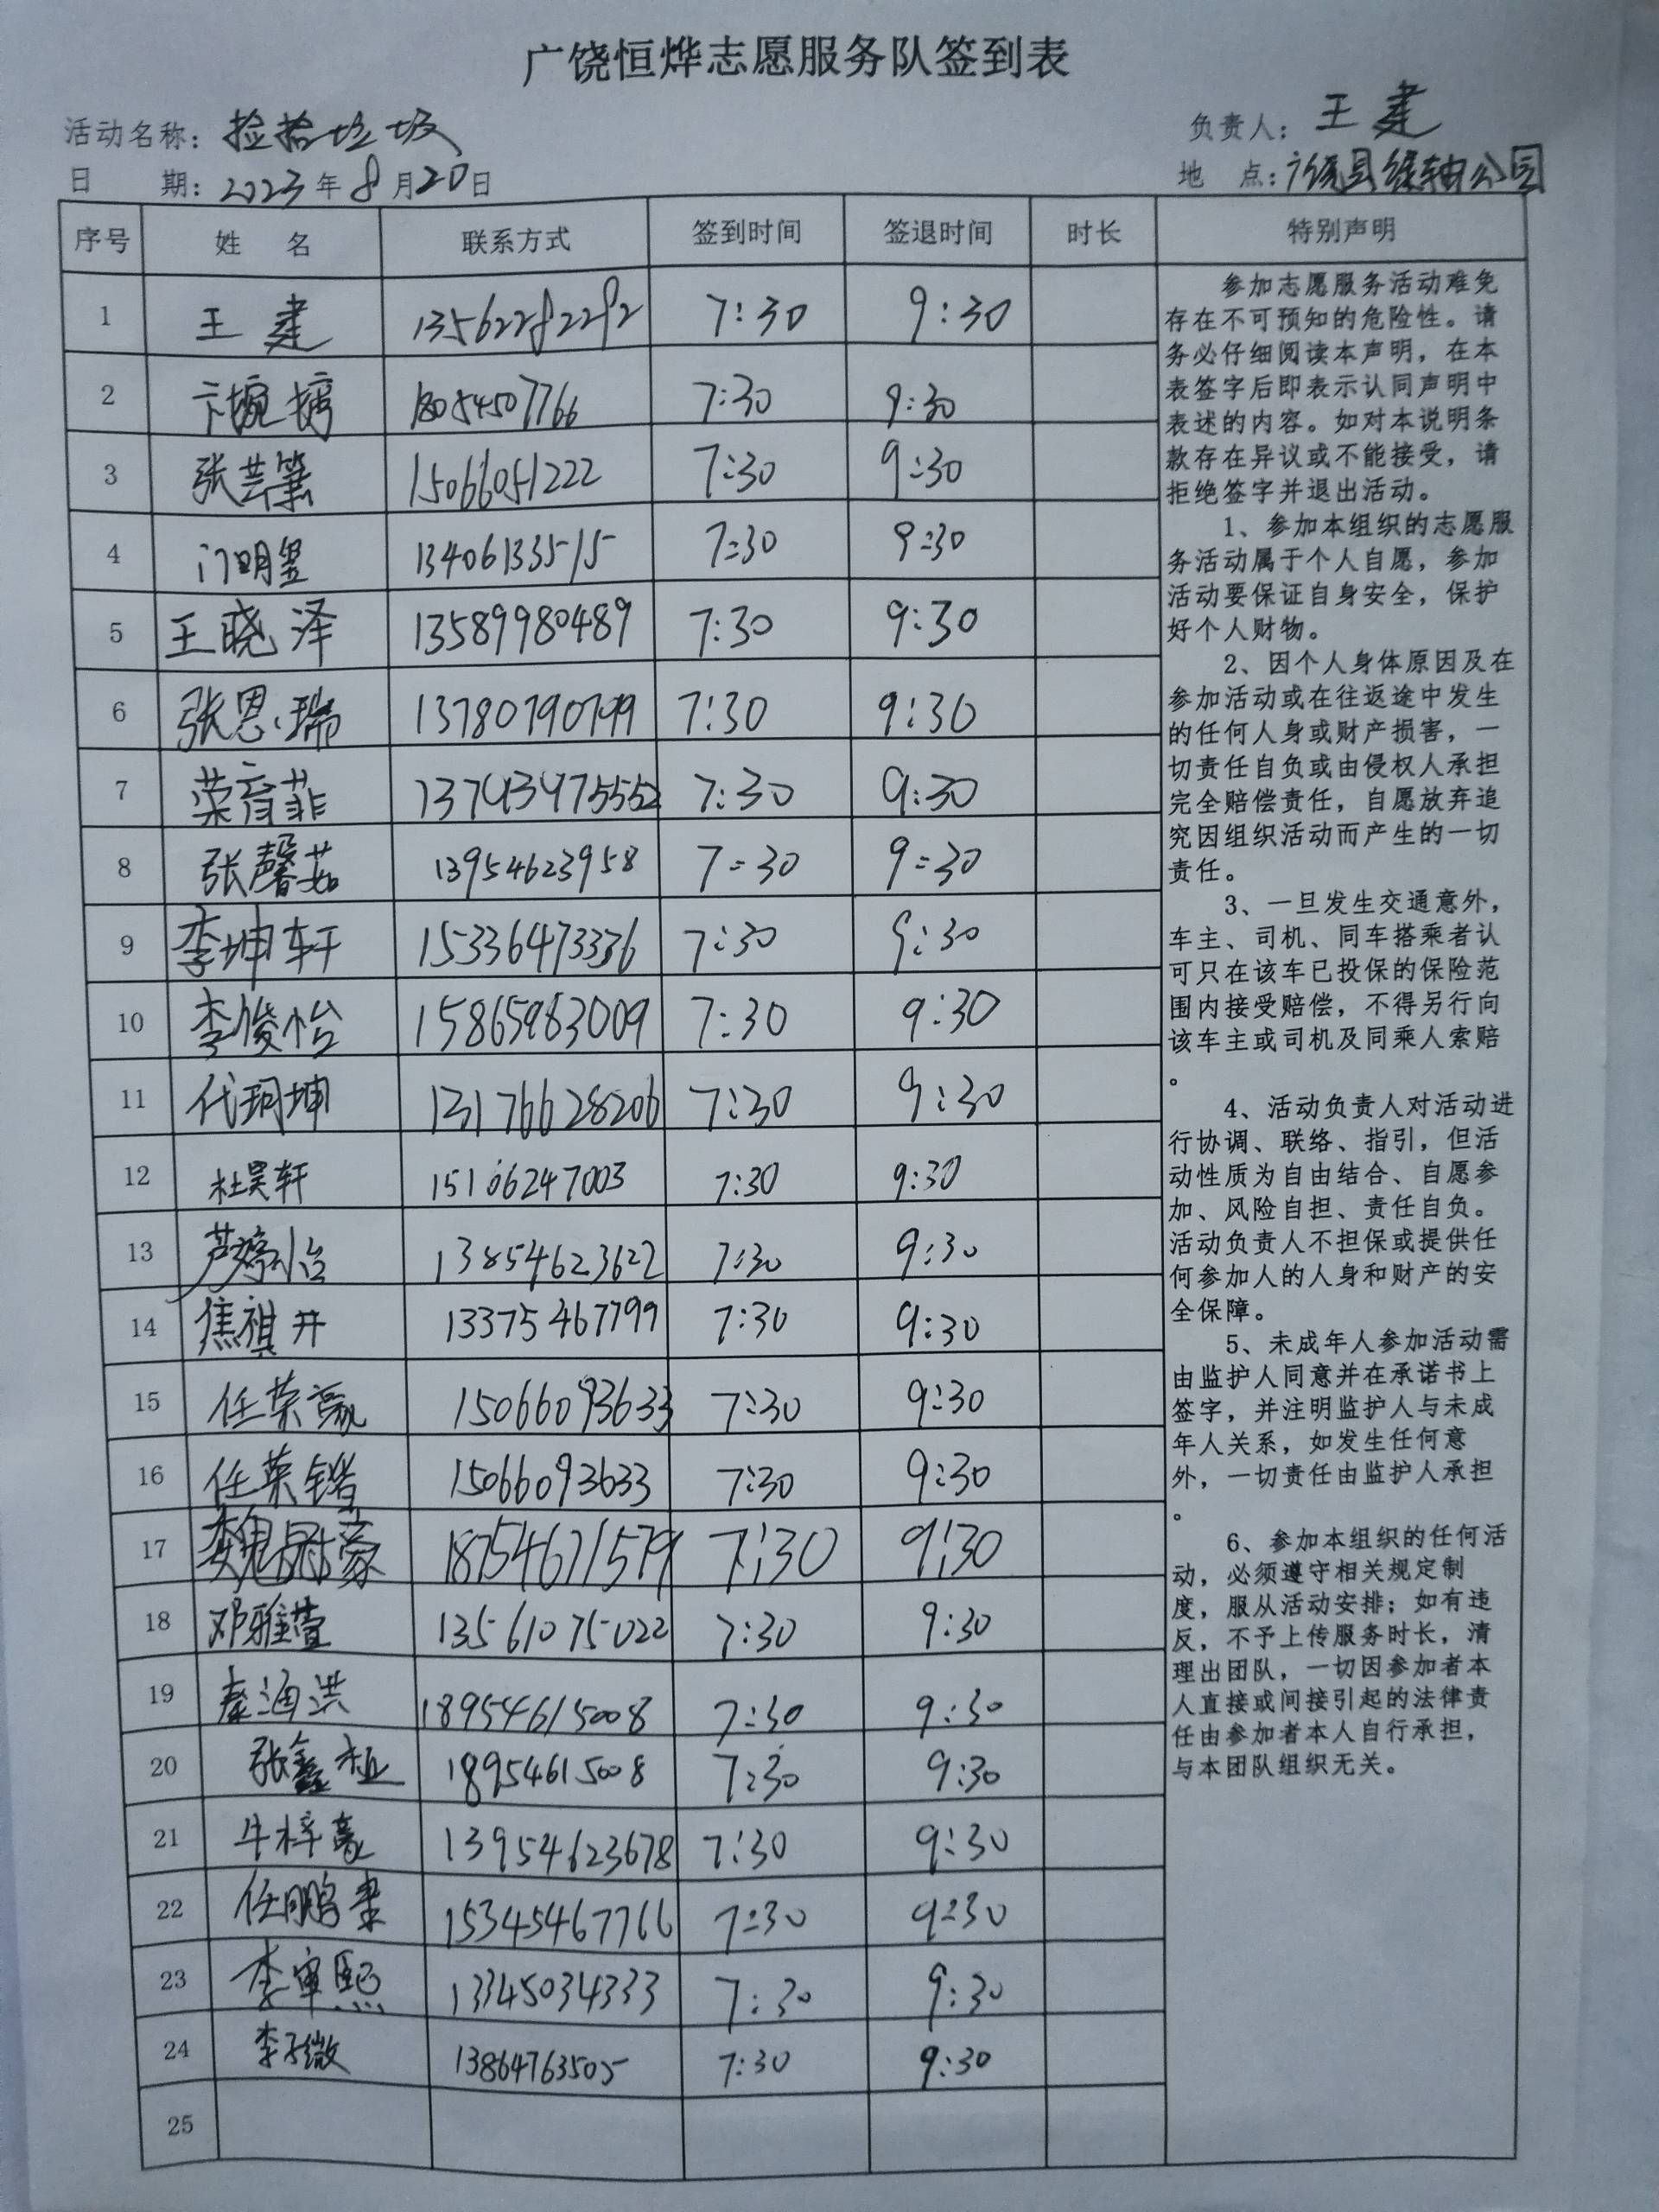 广饶恒烨志愿服务队签到表
活动名称：捡拾垃圾 负责人：王建
日 期：2023年8月20日 地 点：广饶县绿轴公园
序号 姓 名 联系方式 签到时间 签退时间 时长 特别声明
1 王建 13562282292 7:30 9:30
2 18054507766 7:30 9:30
3 张芸箫 15066051222 7:30 9:30
4 门明昱 13406133515 7:30 9:30
5 王晓泽 13589980489 7:30 9:30
6 张恩瑞 13780790799 7:30 9:30
7 荣育菲 7:30 9:30
8 张馨茹 13954623958 7:30 9:30
9 李坤轩 15336473336 7:30 9:30
10 李俊怡 15865983009 7:30 9:30
11 代玥坤 13176628206 7:30 9:30
12 杜昊轩 15106247003 7:30 9:30
13 芦婷怡 13854623622 7:30 9:30
14 焦祺井 13375467799 7:30 9:30
15 任荣赢 15066093633 7:30 9:30
16 任荣锴 15066093633 7:30 9:30
17 18754671579 7:30 9:30
18 邓雅萱 13561075022 7:30 9:30
19 秦海洪 18954615008 7:30 9:30
20 张鑫桓 18954615008 7:30 9:30
21 牛梓豪 13954623678 7:30 9:30
22 任鹏 15345467766 7:30 9:30
23 李审熙 13345034333 7:30 9:30
24 李子微 13864763505 7:30 9:30
25
参加志愿服务活动难免
存在不可预知的危险性。请
务必仔细阅读本声明，在本
表签字后即表示认同声明中
表述的内容。如对本说明条
款存在异议或不能接受，请
拒绝签字并退出活动。
1、参加本组织的志愿服
务活动属于个人自愿，参加
活动要保证自身安全，保护
好个人财物。
2、因个人身体原因及在
参加活动或在往返途中发生
的任何人身或财产损害，一
切责任自负或由侵权人承担
完全赔偿责任，自愿放弃追
究因组织活动而产生的一切
责任。
3、一旦发生交通意外，
车主、司机、同车搭乘者认
可只在该车已投保的保险范
围内接受赔偿，不得另行向
该车主或司机及同乘人索赔
。
4、活动负责人对活动进
行协调、联络、指引，但活
动性质为自由结合、自愿参
加、风险自担、责任自负。
活动负责人不担保或提供任
何参加人的人身和财产的安
全保障。
5、未成年人参加活动需
由监护人同意并在承诺书上
签字，并注明监护人与未成
年人关系，如发生任何意
外，一切责任由监护人承担
。
6、参加本组织的任何活
动，必须遵守相关规定制
度，服从活动安排；如有违
反，不予上传服务时长，清
理出团队，一切因参加者本
人直接或间接引起的法律责
任由参加者本人自行承担，
与本团队组织无关。